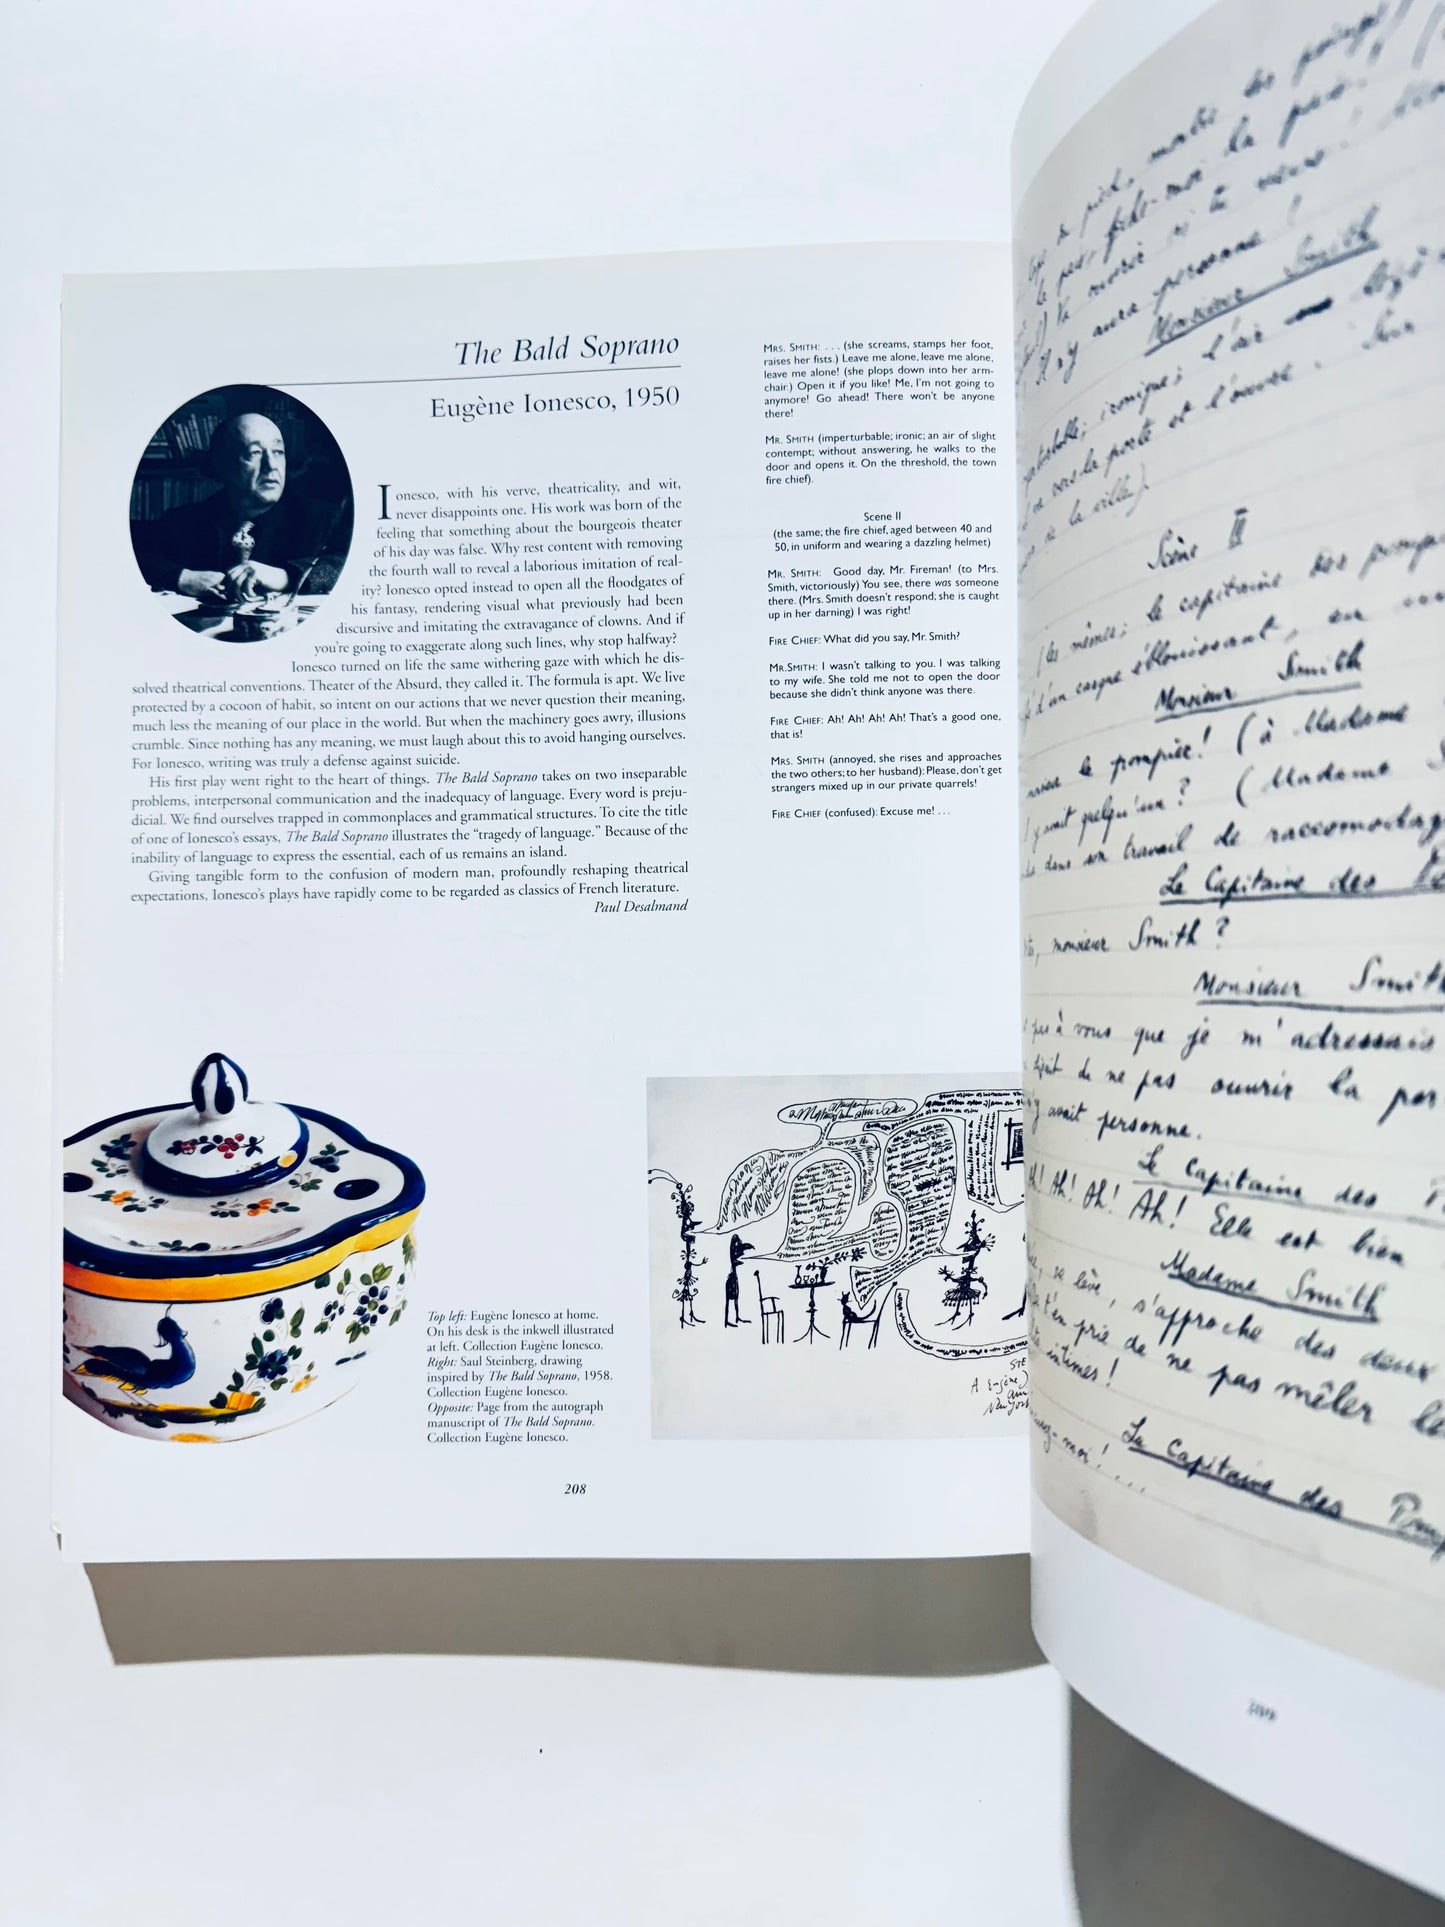 The Bald Soprano
Eugène Ionesco, 1950
Ionesco, with his verve, theatricality, and wit,
never disappoints one. His work was born of the
feeling that something about the bourgeois theater
of his day was false. Why rest content with removing
the fourth wall to reveal a laborious imitation of real-
ity? Ionesco opted instead to open all the floodgates of
his fantasy, rendering visual what previously had been
discursive and imitating the extravagance of clowns. And if
you're going to exaggerate along such lines, why stop halfway?
Ionesco turned on life the same withering gaze with which he dis-
solved theatrical conventions. Theater of the Absurd, they called it. The formula is apt. We live
protected by a cocoon of habit, so intent on our actions that we never question their meaning,
much less the meaning of our place in the world. But when the machinery goes awry, illusions
crumble. Since nothing has any meaning, we must laugh about this to avoid hanging ourselves.
For Ionesco, writing was truly a defense against suicide.
His first play went right to the heart of things. The Bald Soprano takes on two inseparable
problems, interpersonal communication and the inadequacy of language. Every word is preju-
dicial. We find ourselves trapped in commonplaces and grammatical structures. To cite the title
of one of Ionesco's essays, The Bald Soprano illustrates the “tragedy of language.” Because of the
inability of language to express the essential, each of us remains an island.
Giving tangible form to the confusion of modern man, profoundly reshaping theatrical
expectations, Ionesco's plays have rapidly come to be regarded as classics of French literature.
Paul Desalmand
MRS. SMITH: . . . (she screams, stamps her foot,
raises her fists.) Leave me alone, leave me alone,
leave me alone! (she plops down into her arm-
chair.) Open it if you like! Me, I'm not going to
anymore! Go ahead! There won't be anyone
there!
MR. SMITH (imperturbable; ironic; an air of slight
contempt; without answering, he walks to the
door and opens it. On the threshold, the town
fire chief).
Scene II
(the same; the fire chief, aged between 40 and
50, in uniform and wearing a dazzling helmet)
MR. SMITH: Good day, Mr. Fireman! (to Mrs.
Smith, victoriously) You see, there was someone
there. (Mrs. Smith doesn't respond; she is caught
up in her darning) I was right!
FIRE CHIEF: What did you say, Mr. Smith?
MR.SMITH: I wasn't talking to you. I was talking
to my wife. She told me not to open the door
because she didn't think anyone was there.
FIRE CHIEF: Ah! Ah! Ah! Ah! That's a good one,
that is!
MRS. SMITH (annoyed, she rises and approaches
the two others; to her husband): Please, don't get
strangers mixed up in our private quarrels!
FIRE CHIEF (confused): Excuse me! . . .
Top left: Eugène Ionesco at home.
On his desk is the inkwell illustrated
at left. Collection Eugène Ionesco.
Right: Saul Steinberg, drawing
inspired by The Bald Soprano, 1958.
Collection Eugène Ionesco.
Opposite: Page from the autograph
manuscript of The Bald Soprano.
Collection Eugène Ionesco.
208
A Eugène
New York
pied, montre les poings
la paix
si tu veux!
aura personne!
Monsieur Smith
ironique; l'air
vers la porte et l'ouvre. Sur
de la ville).
Scène II
(les mêmes; le capitaine des pompiers
d'un casque éblouissant, en
Monsieur Smith
le pompier! (à Madame
quelqu'un? (Madame S
dans son travail de raccomodage
Le Capitaine des
monsieur Smith?
Monsieur Smith
pas à vous que je m'adressais
de ne pas ouvrir la por
avait personne.
Le Capitaine des
Ah! Ah! Ah! Elle est bien
Madame Smith
se lève, s'approche des deux
t'en prie de ne pas mêler
intimes!
moi! . . .
Le Capitaine des
209